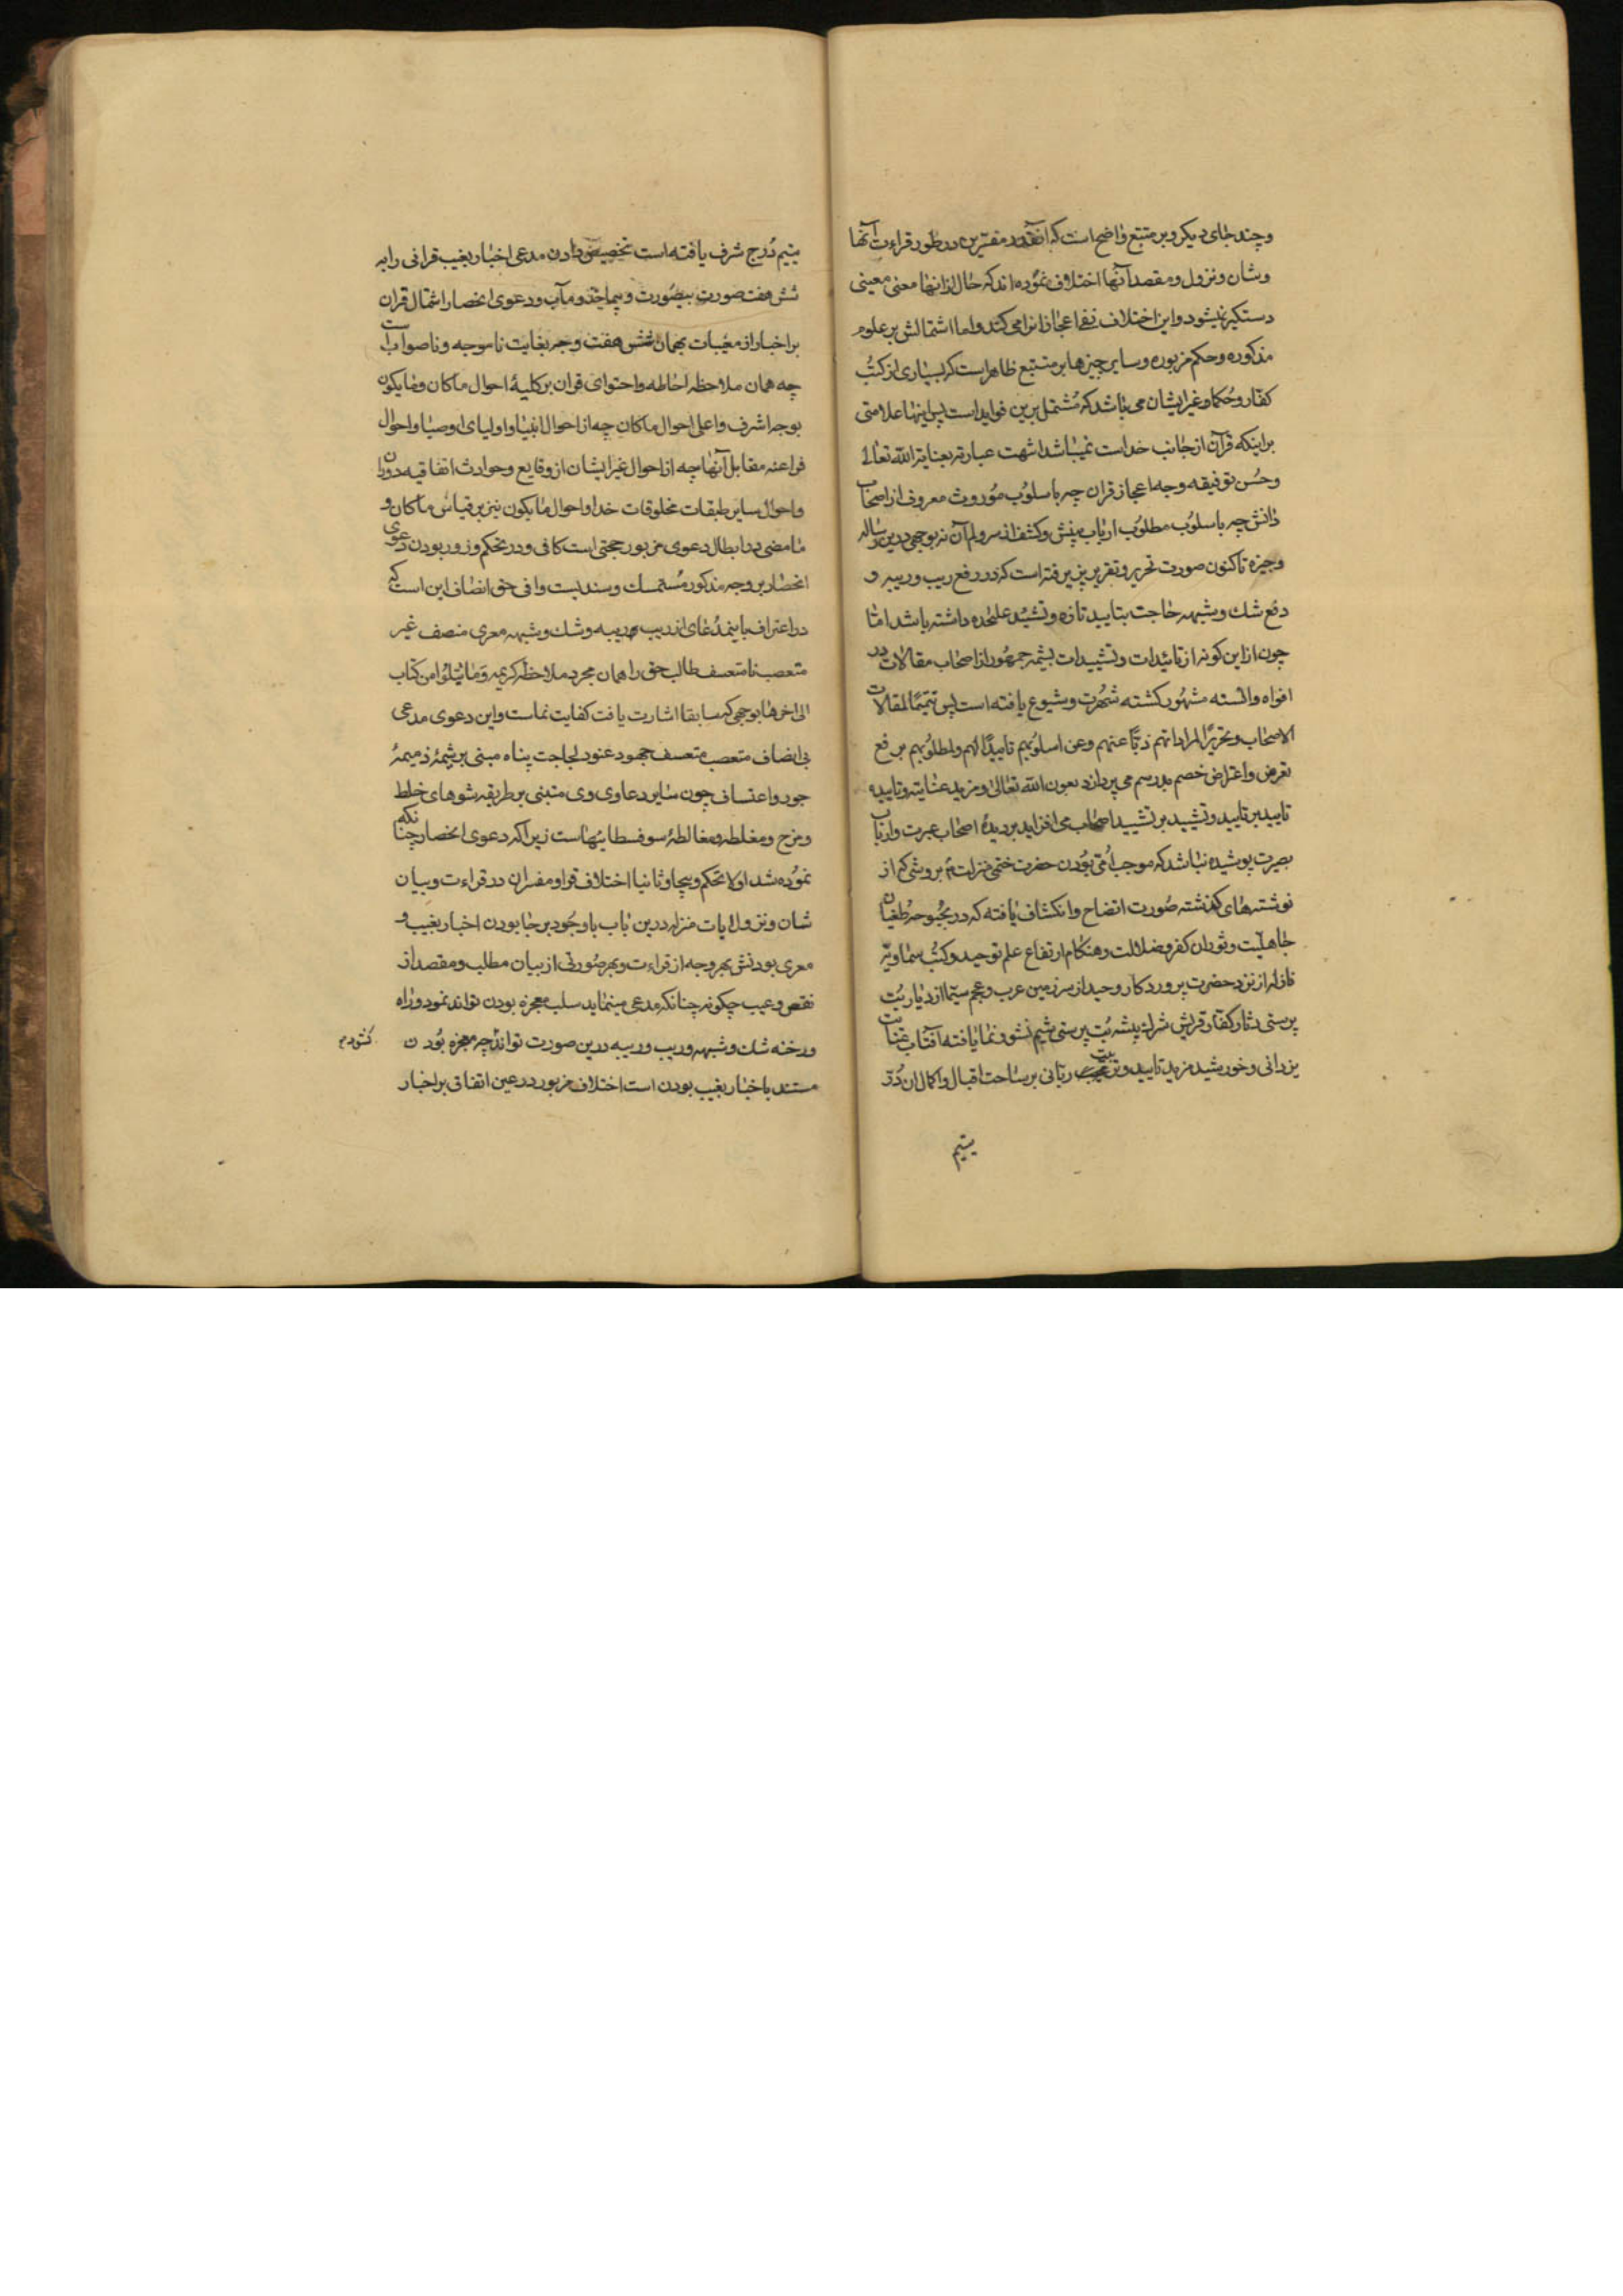 و چند جای دیکر و بر متتبع واضح است که آنقدر مفسرین در طور قراءت آنها
و شان و نزول و مقصد آنها اختلاف نموده اند که حال از انها معنی معینی
دستکیر نمیشود و این اختلاف نفی اعجاز انرا می کند و اما اشتمالش بر علوم
مذکوره و حکم مزبوره و سایر چیزها بر متتبع ظاهر است که بسیاری از کتب
کفار و حکما و غیر ایشان می باشد که مشتمل برین فواید است پس اینها علامتی
بر اینکه قرآن از جانب خداست نمیباشد انتهت عبارته بعنایة الله تعالی
و حسن توفیقه وجه اعجاز قران چه باسلوب موروث معروف از اصحاب
دانش چه باسلوب مطلوب ارباب بینش و کشف از سر و لم آن نه بوجهی درین رساله
وجیزه تاکنون صورت تحریر و تقریر پذیرفته است که در رفع ریب و ریبه و
دفع شك و شبهه حاجت بتایید تازه و تشیید علیحده داشته باشد اما
چون از این کونه از تائیدات و تشییدات بشیمه جمهور از اصحاب مقالات در
افواه و السنه مشهور کشته شهرت و شیوع یافته است پس تتمیماً لمقالات
الاصحاب و تحریراً لمراداتهم ذبّاً عنهم و عن اسلوبهم تاییداً لهم و لمطلوبهم بر فع
تعرض و اعتراض خصم بدرسم می پردازد بعون الله تعالی و مزید عنایته و تاییده
تایید بر تایید و تشیید بر تشیید اصحاب می افزاید بر دیدهٔ اصحاب عبرت و ارباب
بصیرت پوشیده نباشد که موجب اُمّی بودن حضرت ختمی منزلت بر روشی که از
نوشتهای کذشته صورت اتضاح و انکشاف یافته که در بحبوحه طغیان
جاهلیت و ثوران کفر و ضلالت و هنکام ارتفاع علم توحید و کتب سماویه
نازله از نزد حضرت پروردکار وحید از سرزمین عرب و عجم سیما از دیار بُت
پرستی دثار کفار قریش شرك پیشه بُت پرستی شیم نشو و نما یافته آفتاب عنایت
یزدانی و خورشید مزید تایید و تربیت ربانی بر ساحت اقبال و اکمال ان دُرّ
یتیم
یتیم دُرج شرف یافته است تخصیص دادن مدعی اخبار بغیب قرانی را به
شش هفت صورت بیصورت و در دعوی انحصار اشتمال قران
بر اخبار از مغیبات بهمان شش هفت وجه بغایت ناموجه و ناصواب است
چه همان ملاحظه احاطه و احتوای قران بر کلیهٔ احوال ما کان و ما یکون
بوجه اشرف و اعلی احوال ما کان چه از احوال انبیا و اولیای اوصیا و احوال
فراعنه مقابل آنها چه از احوال غیر ایشان از وقایع و حوادث اتفاقیه دوران
و احوال سایر طبقات مخلوقات خدا و احوال ما یکون نیز بر قیاس ما کان و
ما مضی در ابطال دعوی مزبور حجتی است کافی و در تحکم و زور بودن دعوی
انحصار بر وجه مذکور مُستمسك و سندیست وافی حق انصاف این است که
در اعتراف باینمدُعای از ریب و ریبه و شك و شبهه معری منصف غیر
متعصب نامتعسف طالب حق را همان مجرد ملاحظه کریمه وَمَا تَتْلُوا من کتاب
الی اخرها بوجهی که سابقا اشارت یافت کفایت نماست و این دعوی مدعی
بی انصاف متعصب متعسف جحود عنود لجاجت پناه مبنی بر شیمهٔ ذمیمهٔ
جور و اعتساف چون سایر دعاوی وی متبنی بر طریقه شوهای خلط
و مزج و مغلطه و مغالطهٔ سوفسطائیهاست زیرا که دعوی انحصار چنانکه
نموده شد اولا تحکم و بیجا و ثانیا اختلاف قرا و مفسران در قراءت و بیان
شان و نزول ایات منزله درین باب باوجود بر جا بودن اخبار بغیب و
معری بودنش بهر وجه از قراءت و بهر صورتی از بیان مطلب و مقصد از
نقص و عیب چکونه چنانکه مدعی مینماید سلب معجزه بودن تواند نمود و راه
و رخنه شك و شبهه و ریب و ریبه درین صورت تواند چه معجزه بودن
کشود
مستند باخبار بغیب بودن است اختلاف مزبور در عین اتفاق بر اخبار